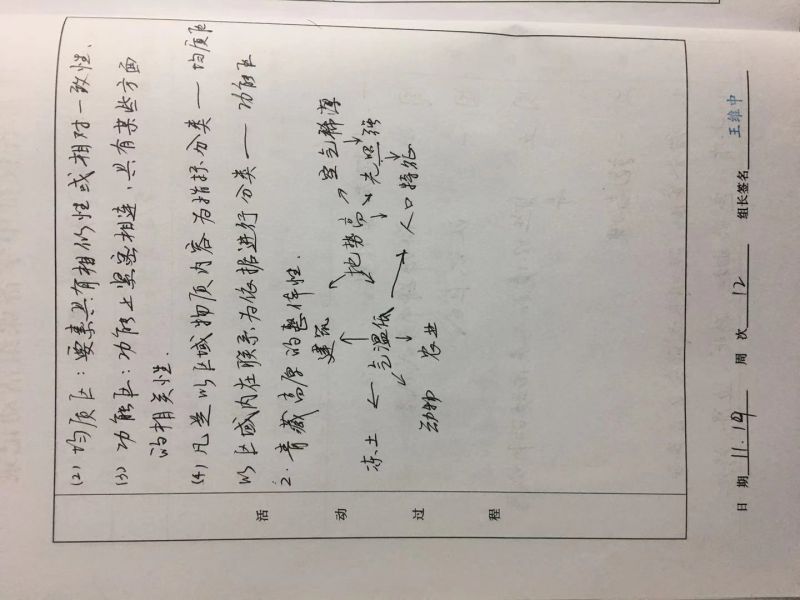 (2) 均质区：要素具有相似性或相对一致性、
(3) 功能区：功能上紧密相连、具有某些方面
的相关性.
(4) 凡是以区域物质内容为指标分类 — 均质区
以区域内在联系为依据进行分类 — 功能区
2. 青藏高原的整体性.
建筑 空气稀薄
地势高 光照强
冻土 气温低 人口特征
动物 农业
活动过程
日期 11.19 周次 12 组长签名 王维中